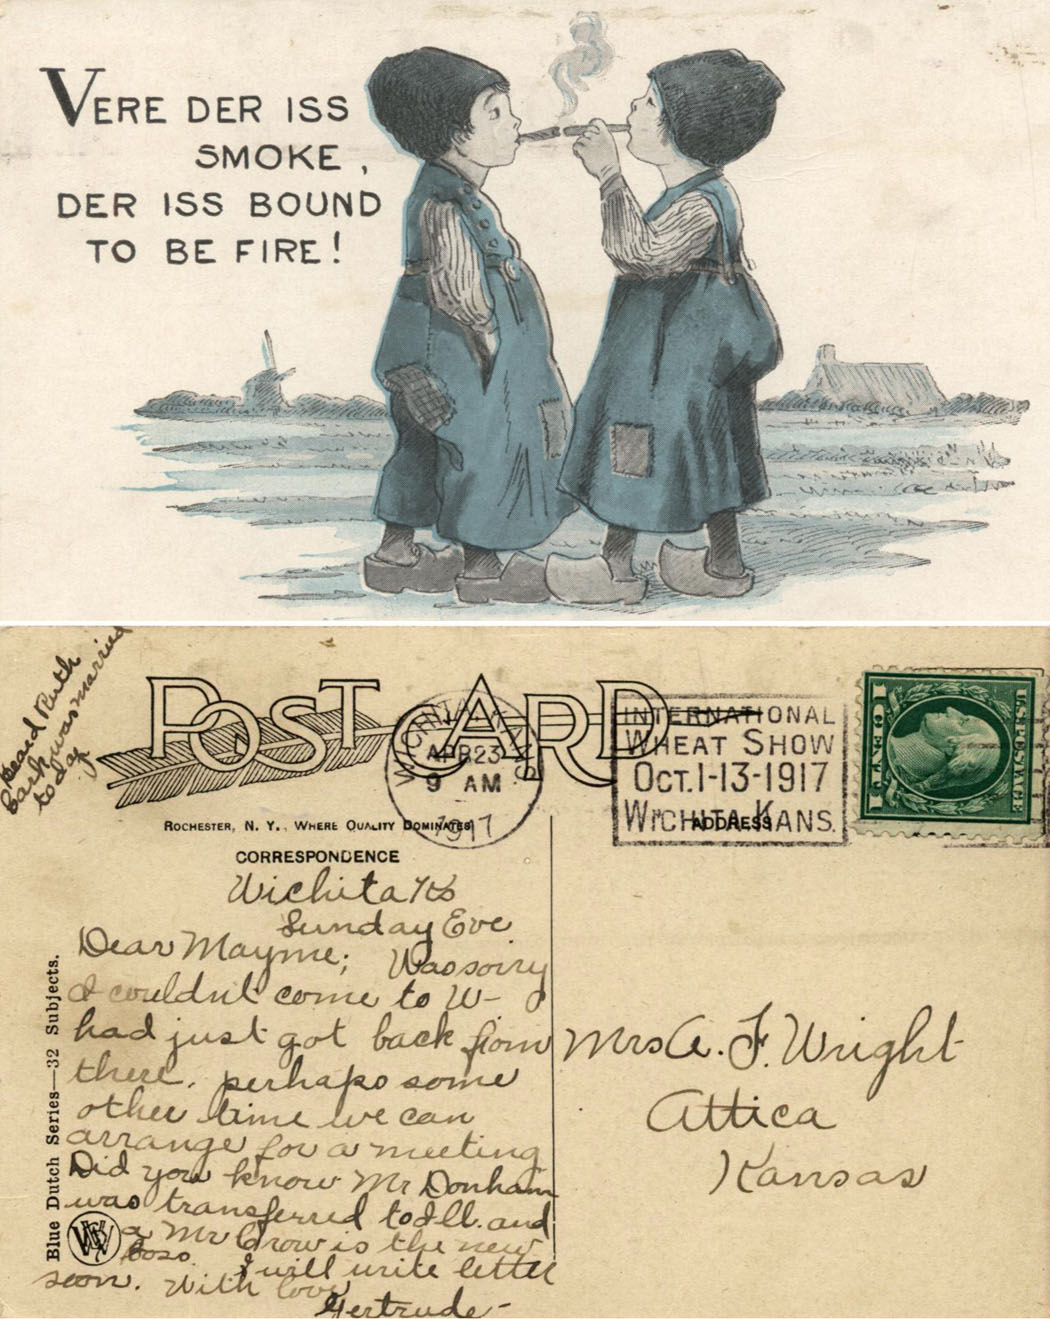 VERE DER ISS
SMOKE,
DER ISS BOUND
TO BE FIRE!
heard Ruth
Bark was married
today
POST CARD
WICHITA, KANS.
APR 23
9 AM
1917
INTERNATIONAL
WHEAT SHOW
OCT. 1-13-1917
WICHITA KANS.
U.S. POSTAGE
1 CENT 1
ROCHESTER, N. Y., WHERE QUALITY DOMINATES
ADDRESS
CORRESPONDENCE
Wichita Ks
Sunday Eve
Dear Mayme; Was sorry
I couldn't come to W-
had just got back from
there. perhaps some
other time we can
arrange for a meeting
Did you know Mr Donham
was transferred to Ill. and
a Mr Crow is the new
boso. I will write letter
soon. With love
Gertrude-
Mrs A. F. Wright
Attica
Kansas
Blue Dutch Series—32 Subjects.